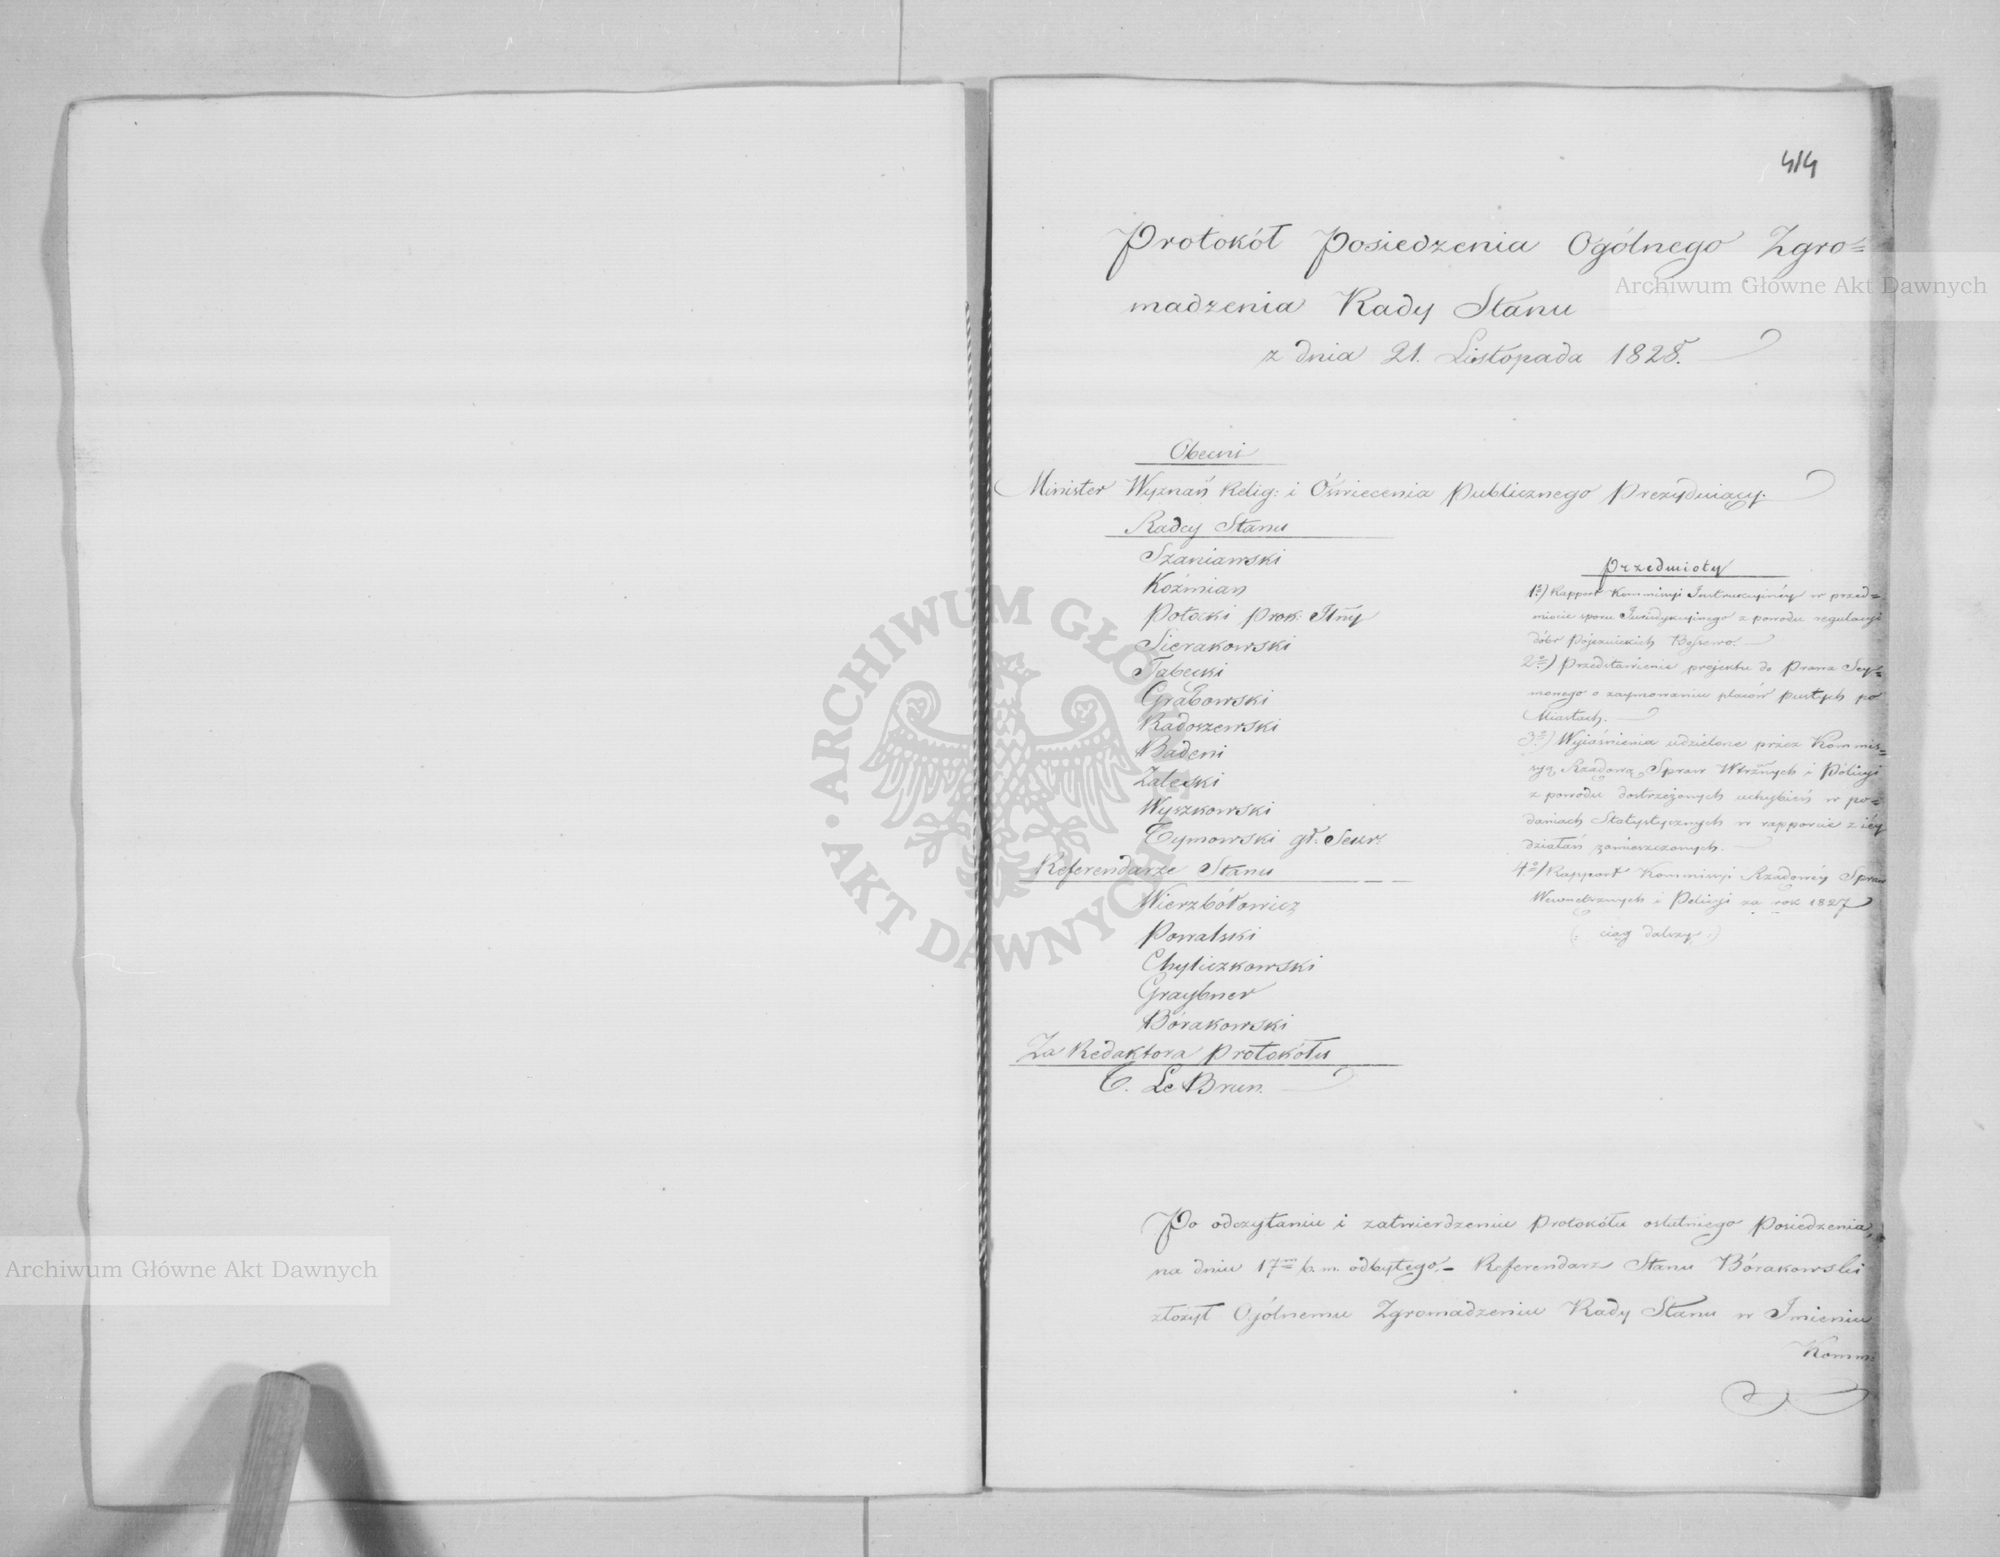 414
Protokół Posiedzenia Ogólnego Zgro=
madzenia Rady Stanu
z dnia 21. Listopada 1828.
Obecni
Minister Wyznań Relig: i Oświecenia Publicznego Prezyduiący.
Radcy Stanu
Szaniawski
Koźmian
Potocki Prok:
Sierakowski
Tąbecki
Grabowski
Radoszewski
Badeni
Zaleski
Wyszkowski
Tymowski gł: Sekr:
Referendarze Stanu
Wierzbołowicz
Powalski
Chyliczkowski
Graybner
Bórakowski
Za Redaktora Protokółu
T. Le Brun.
Przedmioty
1o) Rapport Kommissyi Instrukcyinéy w przed=
miocie sporu Jurisdykcyinego z powodu regulacyi
dóbr Pojezuickich
2o) Przedstawienie projektu do Prawa Sey=
mowego o zaymowaniu placów pustych po
Miastach.
3o) Wyiaśnienia udzielone przez Kommis=
syą Rządową Spraw Wtrznych i Policyi
z powodu dostrzeżonych uchybień w po=
daniach Statystycznych w rapporcie z iéy
działań zamieszczonych.
4o) Rapport Kommissyi Rządowéy Spraw
Wewnętrznych i Policyi za rok 1827
(: ciąg dalszy :)
Po odczytaniu i zatwierdzeniu Protokółu ostatniego Posiedzenia,
na dniu 17m b. m. odbytego. – Referendarz Stanu Bórakowski
złożył Ogólnemu Zgromadzeniu Rady Stanu w Imieniu
Kommi
Archiwum Główne Akt Dawnych
Archiwum Główne Akt Dawnych
ARCHIWUM GŁÓWNE AKT DAWNYCH